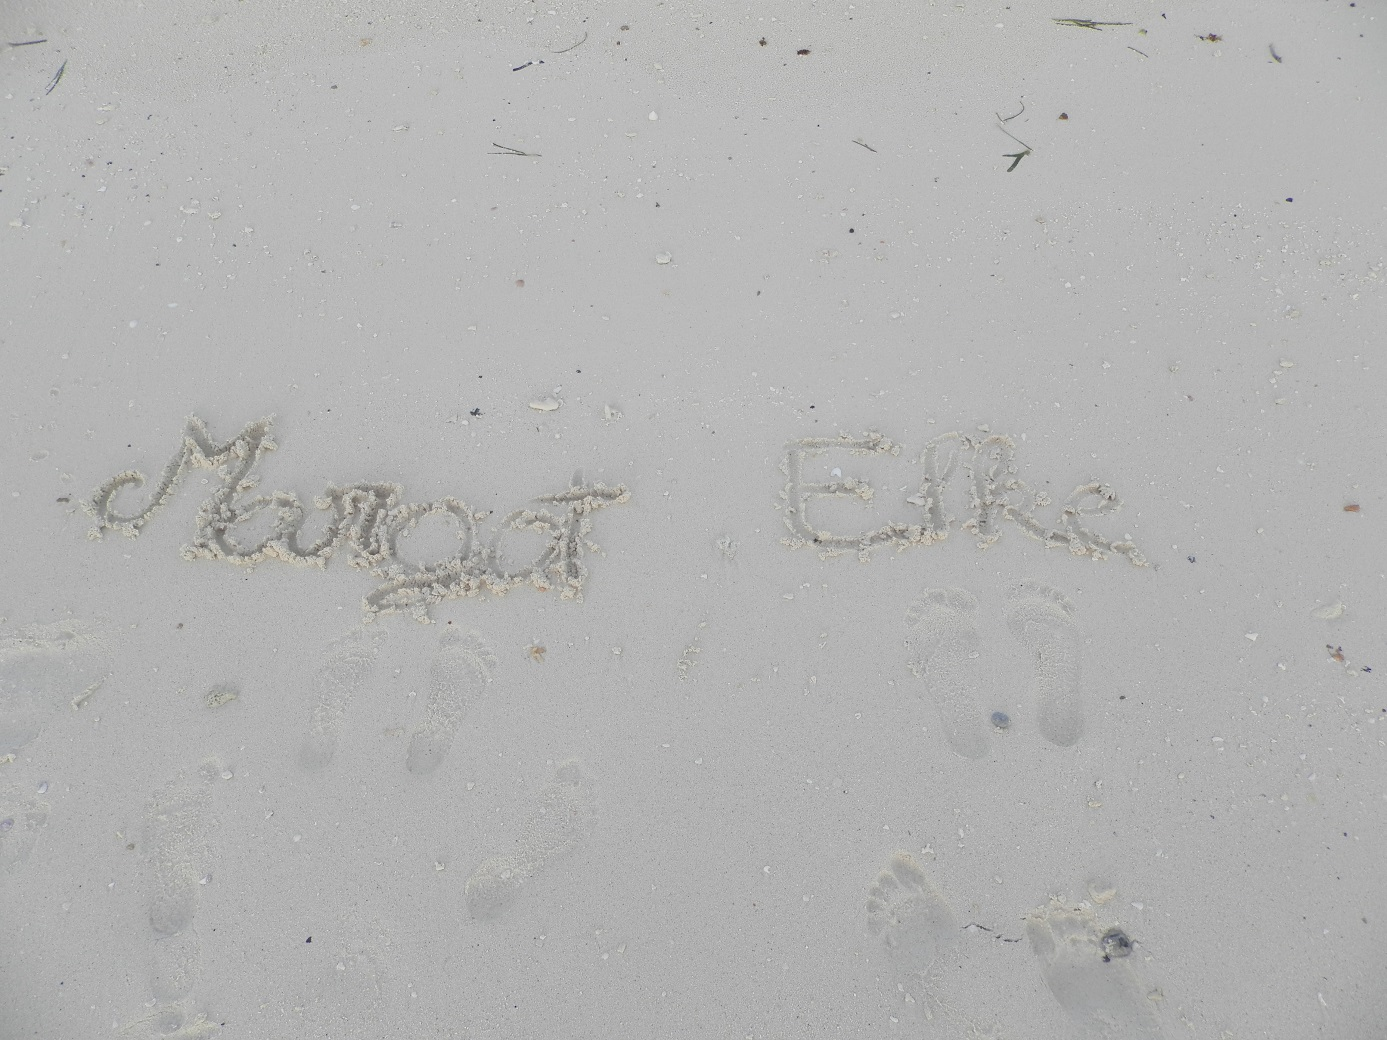 Margot Elke